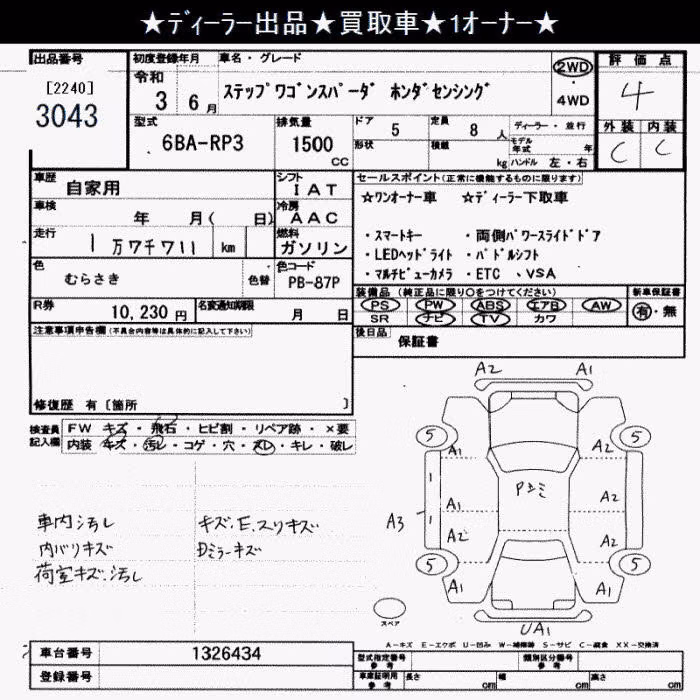 ★ディーラー出品★買取車★1オーナー★
出品番号
[2240]
3043
初度登録年月
令和
3 6月
車名・グレード
ステップワゴンスパーダ ホンダセンシング
2WD
4WD
評価点
4
外装 内装
C C
型式
6BA-RP3
排気量
1500
cc
ドア
5
定員
8 人
ディーラー・並行
形状
積載
kg
モデル年式
年
ハンドル 左・右
車歴
自家用
シフト
IAT
車検
年 月( 日)
冷房
AAC
走行
1万7千711 km
燃料
ガソリン
色
むらさき
色替
色コード
PB-87P
R券
10,230円
名変通知期限
月 日
セールスポイント(正常に機能するものに限ります)
★ワンオーナー車 ★ディーラー下取車
・スマートキー ・両側パワースライドドア
・LEDヘッドライト ・パドルシフト
・マルチビューカメラ ・ETC 、VSA
装備品(純正品に限り○をつけてください)
PS PW ABS エアB AW
SR ナビ TV カワ
新車保証書
有・無
後日品
保証書
注意事項申告欄(不具合内容等は具体的に記入して下さい)
修復歴 有〔箇所 〕
検査員記入欄
FW キズ・飛石・ヒビ割・リペア跡・×要
内装 キズ・汚レ・コゲ・穴・スレ・キレ・破レ
車内汚し
内バリキズ
荷室キズ、汚し
キズ、E、スリキズ
Dミラーキズ
A2 A1
5 5
A1 A2
1
Pシミ
A3
1 A1
A2 A2
5 5
A1 A1
UA1
スペア
A-キズ E-エクボ U-凹み W-補修跡 S-サビ C-腐食 XX-交換済
車台番号
1326434
登録番号
型式指定番号
参考
類別区分番号
参考
車庫証明用
参考
長さ cm
幅 cm
高さ cm